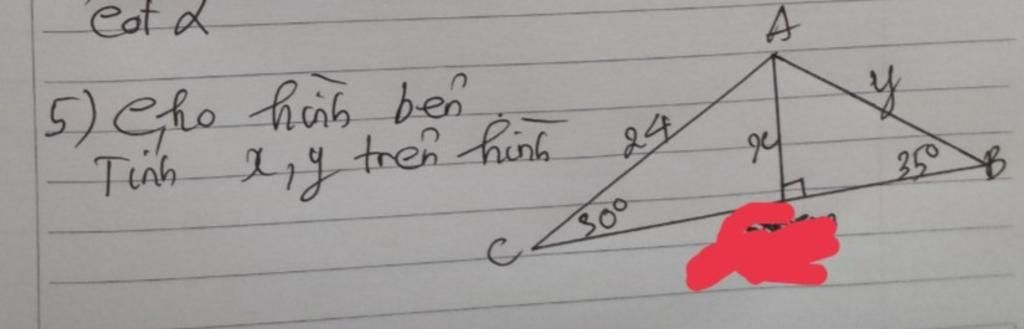 cot α
5) Cho hình bên
Tính x, y trên hình
A
y
24
x
35°
B
30°
C